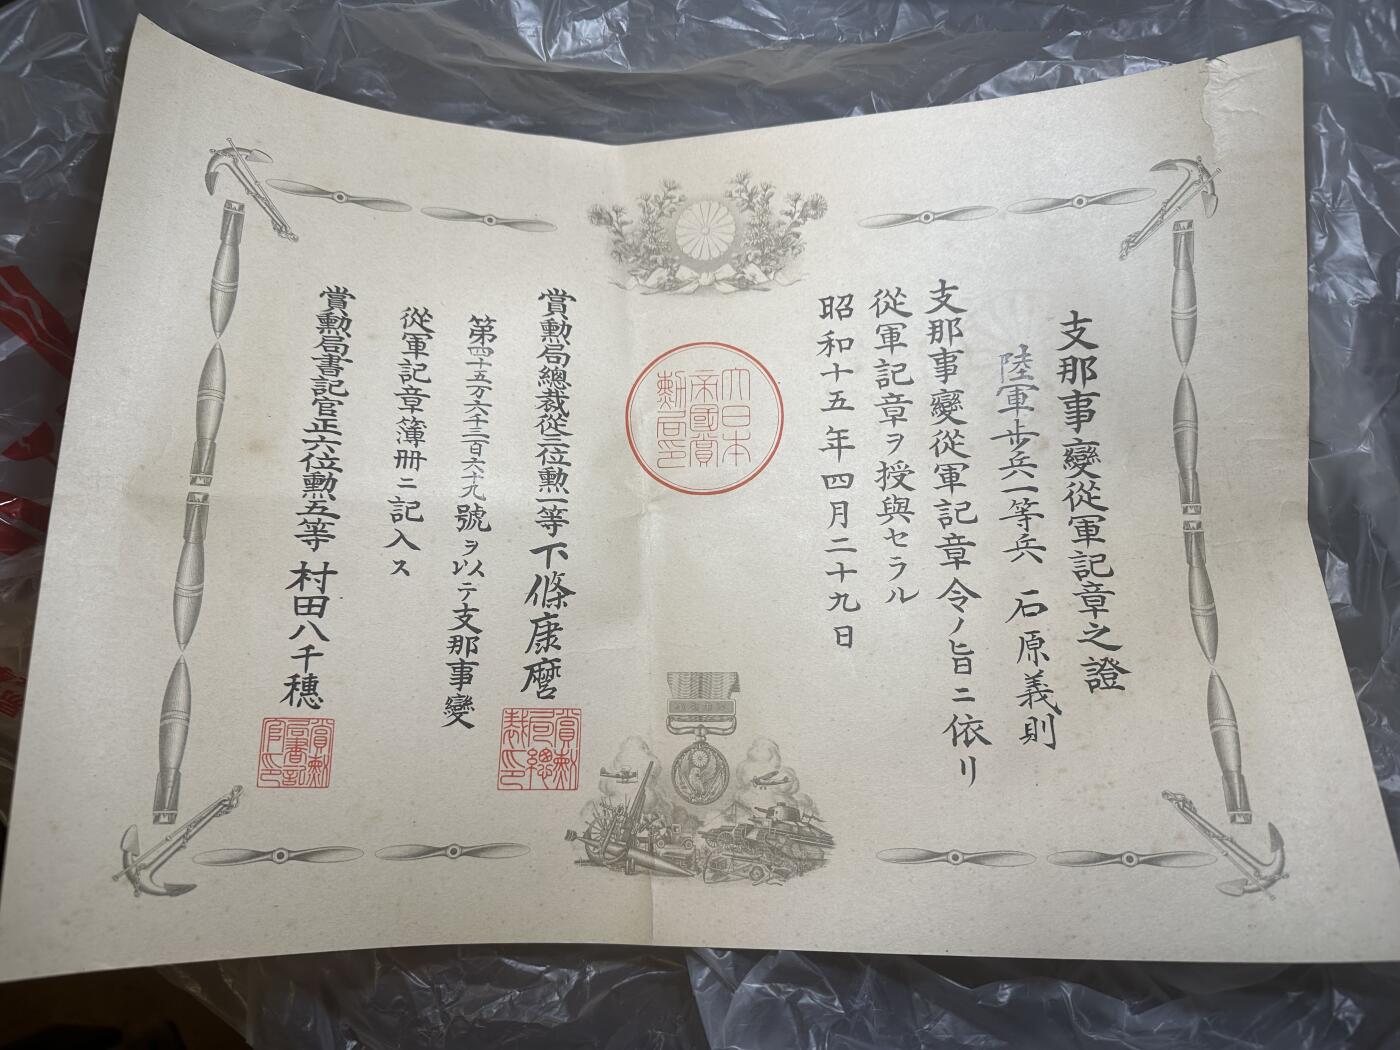 支那事變從軍記章之證
陸軍歩兵一等兵 石原義則
支那事變從軍記章令ノ旨ニ依リ
從軍記章ヲ授與セラル
昭和十五年四月二十九日
大日本
帝國賞
勲局印
賞勲局總裁從三位勲一等下條康麿
賞勲
局總
裁印
第四十五万六千三百六十九號ヲ以テ支那事變
從軍記章簿冊ニ記入ス
賞勲局書記官正六位勲五等村田八千穗
賞勲
局書記
官印